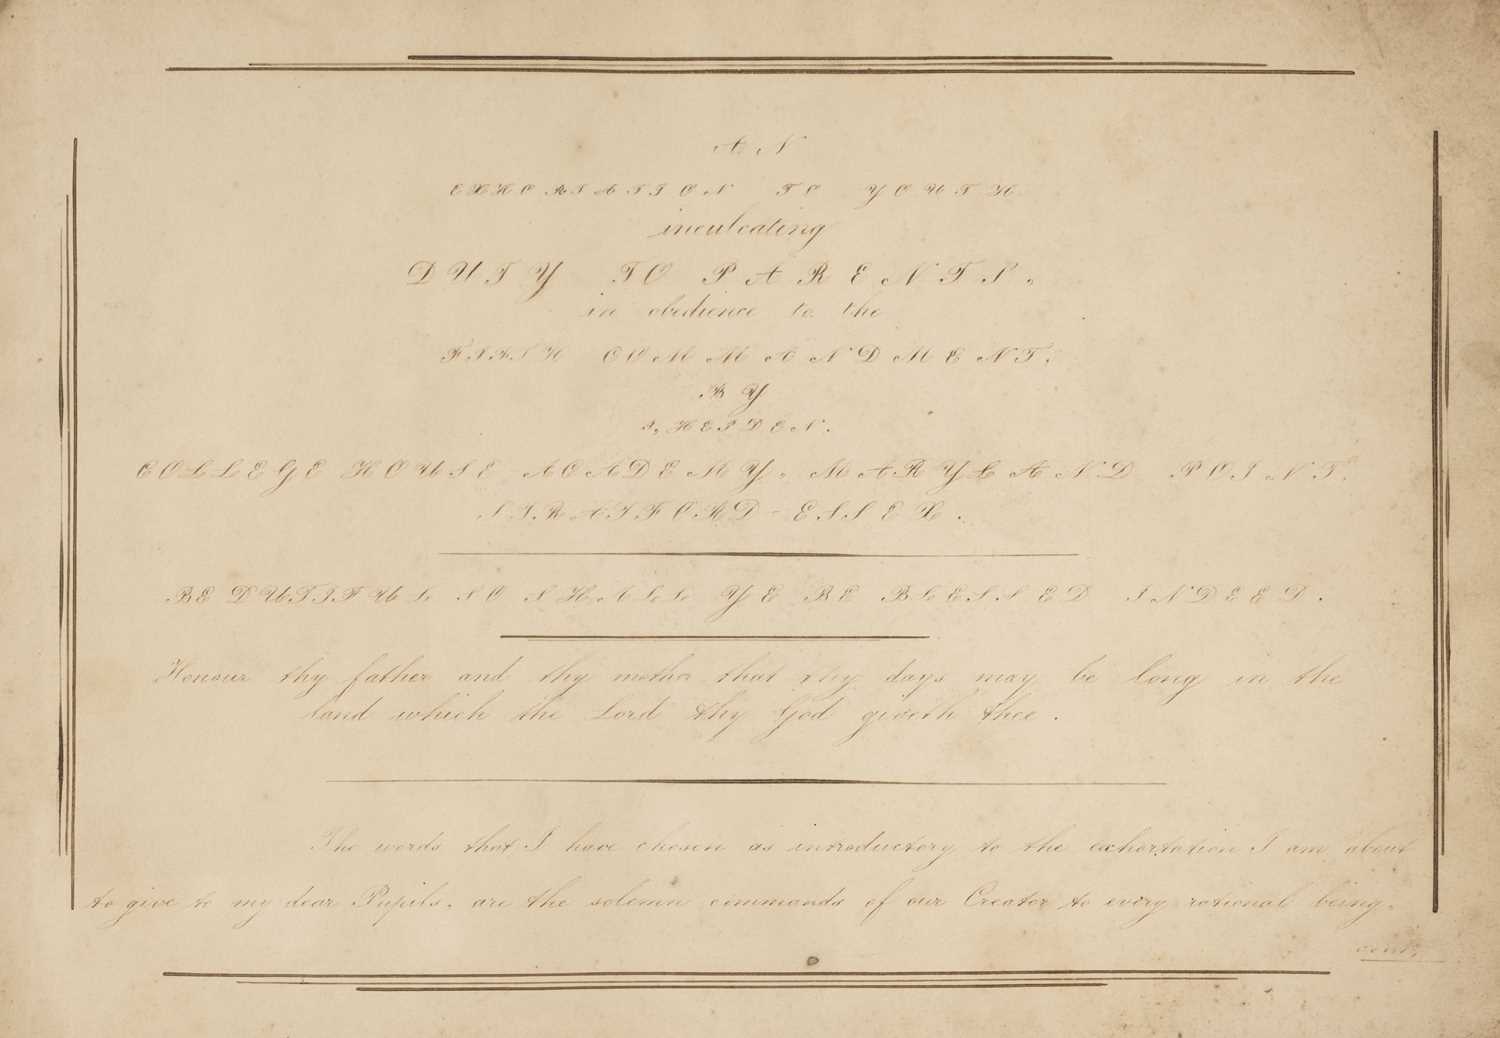 AN
EXHORTATION TO YOUTH
inculcating
DUTY TO PARENTS.
in obedience to the
FIFTH COMMANDMENT.
BY
COLLEGE HOUSE ACADEMY. MARYLAND POINT.
STRATFORD - ESSEX.
BE DUTIFUL SO SHALL YE BE BLESSED INDEED.
Honour thy father and thy mother that thy days may be long in the
land which the Lord thy God giveth thee.
The words that I have chosen as introductory to the exhortation I am about
to give to my dear Pupils. are the solemn commands of our Creator to every rational being.